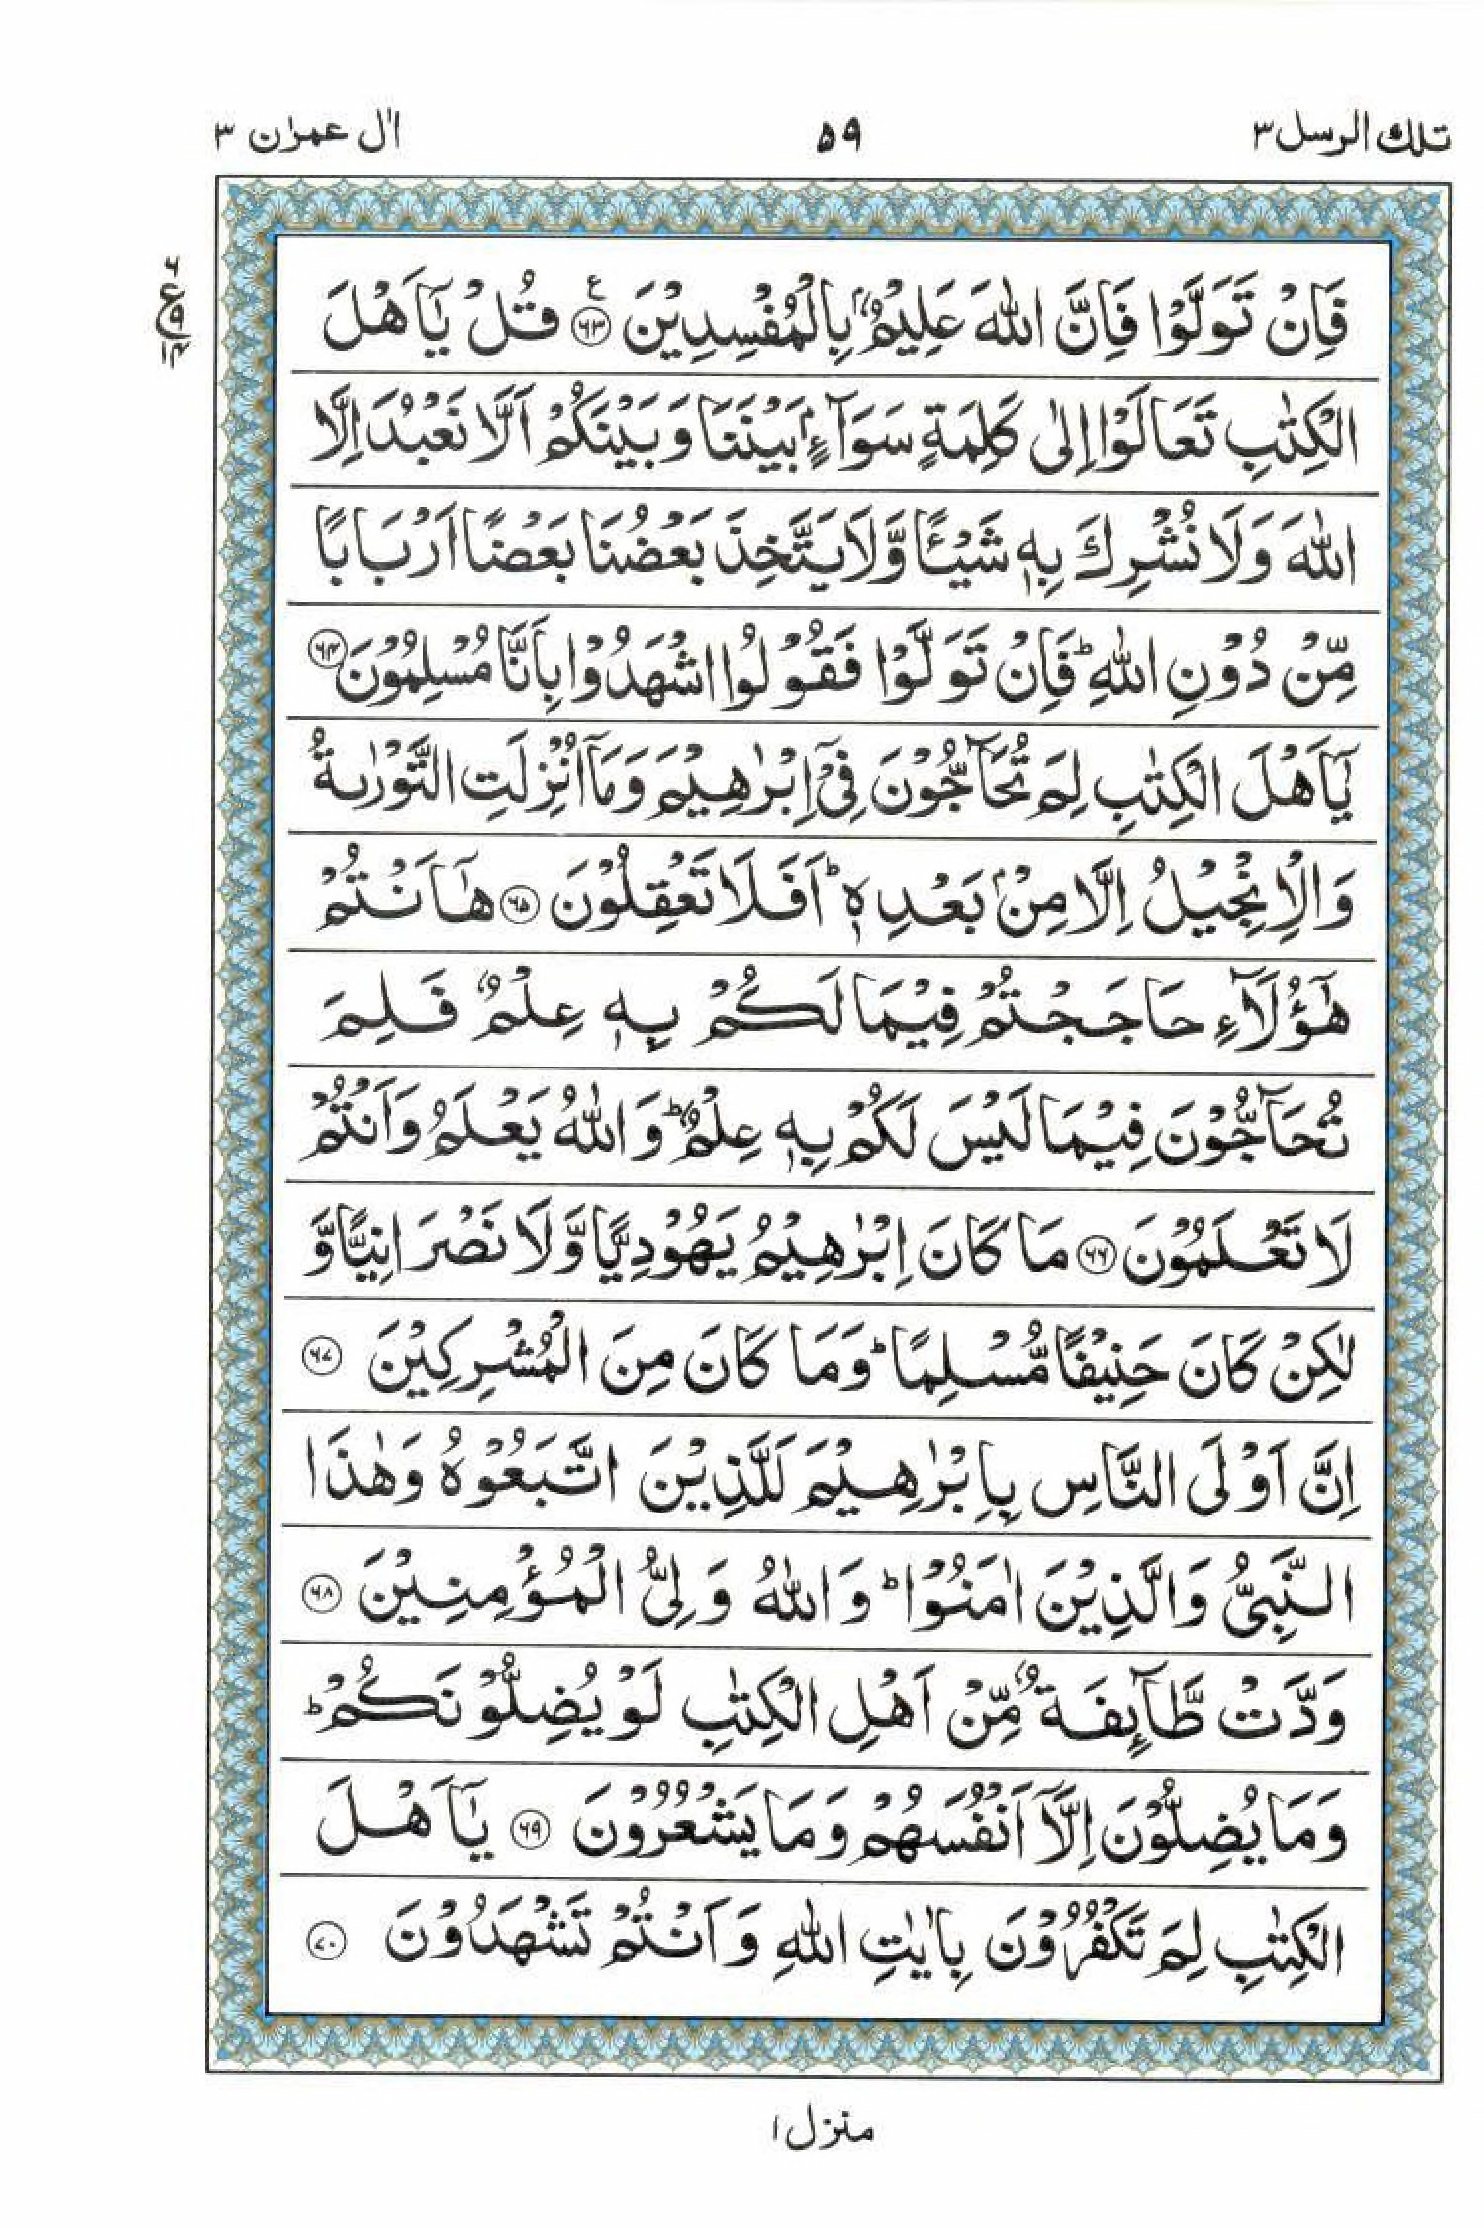 تلك الرسل ٣
٥٩
اٰل عمرٰن ٣
فَاِنْ تَوَلَّوْا فَاِنَّ اللّٰهَ عَلِيْمٌۢ بِالْمُفْسِدِيْنَ ﴿۶۳﴾ ع قُلْ يٰۤاَهْلَ
ع ٦ ٩ ١٤
الْكِتٰبِ تَعَالَوْا اِلٰى كَلِمَةٍ سَوَآءٍۭ بَيْنَنَا وَبَيْنَكُمْ اَلَّا نَعْبُدَ اِلَّا
اللّٰهَ وَلَا نُشْرِكَ بِهٖ شَيْـًٔا وَّلَا يَتَّخِذَ بَعْضُنَا بَعْضًا اَرْبَابًا
مِّنْ دُوْنِ اللّٰهِ ؕ فَاِنْ تَوَلَّوْا فَقُوْلُوا اشْهَدُوْا بِاَنَّا مُسْلِمُوْنَ ﴿۶۴﴾
يٰۤاَهْلَ الْكِتٰبِ لِمَ تُحَآجُّوْنَ فِيْۤ اِبْرٰهِيْمَ وَمَاۤ اُنْزِلَتِ التَّوْرٰىةُ
وَالْاِنْجِيْلُ اِلَّا مِنْۢ بَعْدِهٖ ؕ اَفَلَا تَعْقِلُوْنَ ﴿۶۵﴾ هٰۤاَنْتُمْ
هٰۤؤُلَآءِ حَاجَجْتُمْ فِيْمَا لَكُمْ بِهٖ عِلْمٌ فَلِمَ
تُحَآجُّوْنَ فِيْمَا لَيْسَ لَكُمْ بِهٖ عِلْمٌ ؕ وَاللّٰهُ يَعْلَمُ وَاَنْتُمْ
لَا تَعْلَمُوْنَ ﴿۶۶﴾ مَا كَانَ اِبْرٰهِيْمُ يَهُوْدِيًّا وَّلَا نَصْرَانِيًّا وَّ
لٰكِنْ كَانَ حَنِيْفًا مُّسْلِمًا ؕ وَمَا كَانَ مِنَ الْمُشْرِكِيْنَ ﴿۶۷﴾
اِنَّ اَوْلَى النَّاسِ بِاِبْرٰهِيْمَ لَلَّذِيْنَ اتَّبَعُوْهُ وَهٰذَا
النَّبِىُّ وَالَّذِيْنَ اٰمَنُوْا ؕ وَاللّٰهُ وَلِىُّ الْمُؤْمِنِيْنَ ﴿۶۸﴾
وَدَّتْ طَّآئِفَةٌ مِّنْ اَهْلِ الْكِتٰبِ لَوْ يُضِلُّوْنَكُمْ ؕ
وَمَا يُضِلُّوْنَ اِلَّاۤ اَنْفُسَهُمْ وَمَا يَشْعُرُوْنَ ﴿۶۹﴾ يٰۤاَهْلَ
الْكِتٰبِ لِمَ تَكْفُرُوْنَ بِاٰيٰتِ اللّٰهِ وَاَنْتُمْ تَشْهَدُوْنَ ﴿۷۰﴾
منزل ١